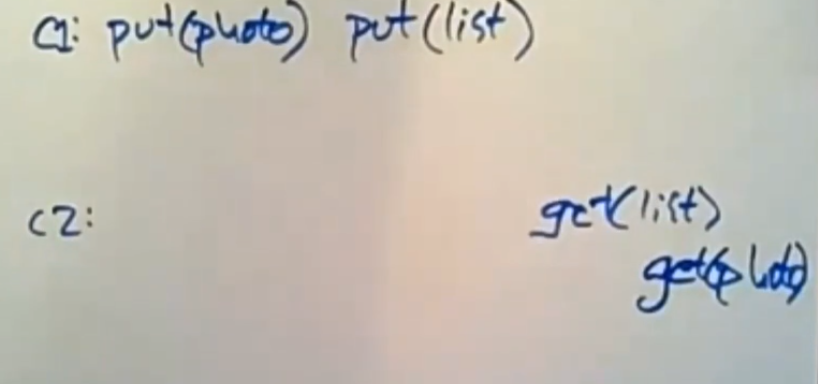 C1: put(photo) put(list)
C2: get(list)
get(photo)